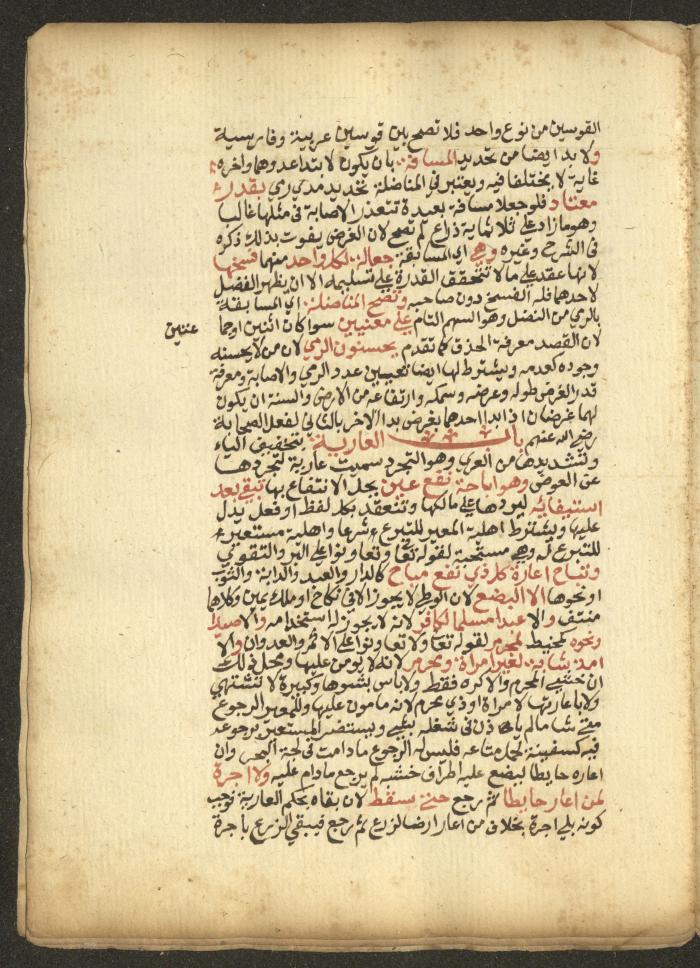 القوسين من نوع واحد فلا تصح بين قوسين عربية وفارسية
ولا بد ايضا من تحديد المسافة بان يكون لابتداء عدوهما واخره
غاية لا يختلفا فيه ويعتبر في المناضلة تحديد مدى رمي بقدر
معتاد فلو جعلا مسافة بعيدة تتعذر الاصابة في مثلها غالبا
وهو ما زاد على ثلاثماية ذراع لم تصح لان الغرض يفوت بذلك ذكره
في الشرح وغيره وهي اي المسابقة جعالة لكل واحد منهما فسخها
لانها عقد على ما لا تتحقق القدرة على تسليمه الا ان يظهر الفضل
لاحدهما فله الفسخ دون صاحبه وتصح المناضلة اي المسابقة
بالرمي من النضل وهو السهم التام على معنيين سوا كان اثنين او جما
عتين
لان القصد معرفة الحذق كما تقدم يحسنون الرمي لان من لا يحسنه
وجوده كعدمه ويشترط لها ايضا تعيين عدد الرمي والاصابة ومعرفة
قدر الغرض طوله وعرضه وسمكه وارتفاعه من الارض والسنة ان يكون
لهما غرضان اذا بدا احدهما بغرض بدا الاخر بالثاني لفعل الصحابة
رضي الله عنهم باب العارية بتخفيف الياء
وتشديدها من العري وهو التجرد سميت عارية لتجردها
عن العوض وهو اباحة نفع عين يحل الانتفاع بها تبقى بعد
استيفائه ليردها على مالكها وتنعقد بكل لفظ او فعل يدل
عليها ويشترط اهلية المعير للتبرع شرعا واهلية مستعير
للتبرع له وهي مستحبة لقوله تعا وتعاونوا على البر والتقوى
وتباح اعارة كل ذي نفع مباح كالدار والعبد والدابة والثوب
او نحوها الا البضع لان الوطي لا يجوز الا في نكاح او ملك يمين وكلاهما
منتف والا عبدا مسلما لكافر لانه لا يجوز له استخدامه والا صيدا
ونحوه كمخيط لمحرم لقوله تعا ولا تعاونوا على الاثم والعدوان والا
امة شابة لغير امراة ومحرم لانه لا يومن عليها ومحل ذلك
ان خشي المحرم والا كره فقط ولا باس بشوها وكبيرة لا تشتهى
ولا باعارتها لامراة او ذي محرم لانه مامون عليها وللمعير الرجوع
متى شا ما لم ياذن في شغله بشي ويستضر المستعير برجوعه
فيه كسفينة لحمل متاعه فليس له الرجوع ما دامت في لجة البحر وان
اعاره حايطا ليضع عليه اطراف خشبه لم يرجع ما دام عليه ولا اجرة
لمن اعار حايطا ثم رجع حتى سقط لان بقاه بحكم العارية فوجب
كونه بلا اجرة بخلاف من اعار ارضا لزرع ثم رجع فيبقى الزرع باجرة